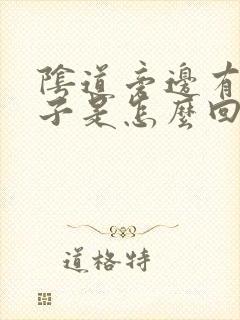 陰道旁邊有
子是怎麼回
道格特